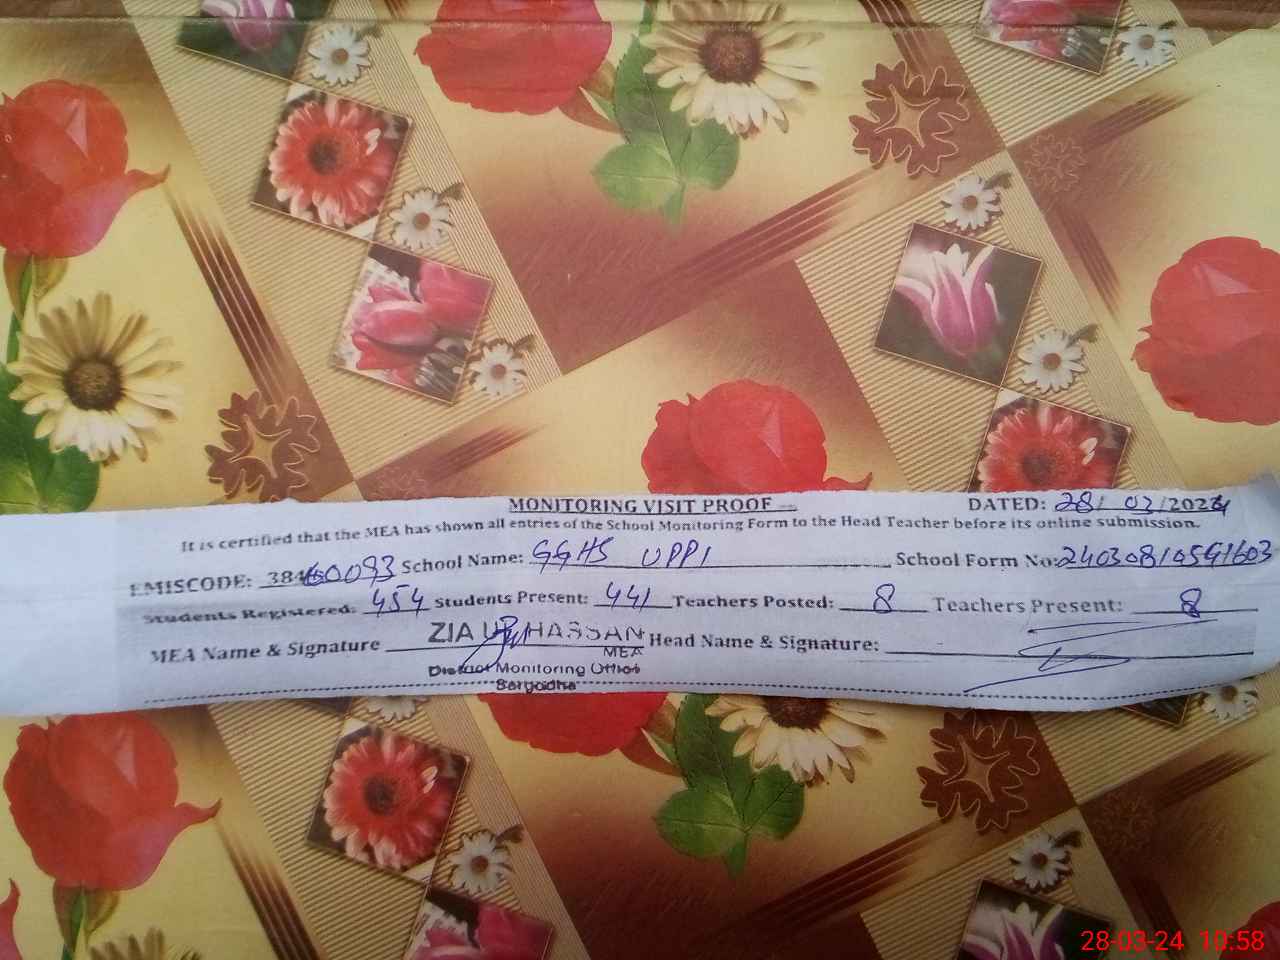 MONITORING VISIT PROOF DATED: 28/ 03/2024
It is certified that the MEA has shown all entries of the School Monitoring Form to the Head Teacher before its online submission.
EMISCODE: 38460093 School Name: GGHS UPPI School Form No: 24030810591603
Students Registered: 454 Students Present: 441 Teachers Posted: 8 Teachers Present: 8
MEA Name & Signature ZIA UL HASSAN Head Name & Signature:
MEA
District Monitoring Office
Sargodha
28-03-24 10:58